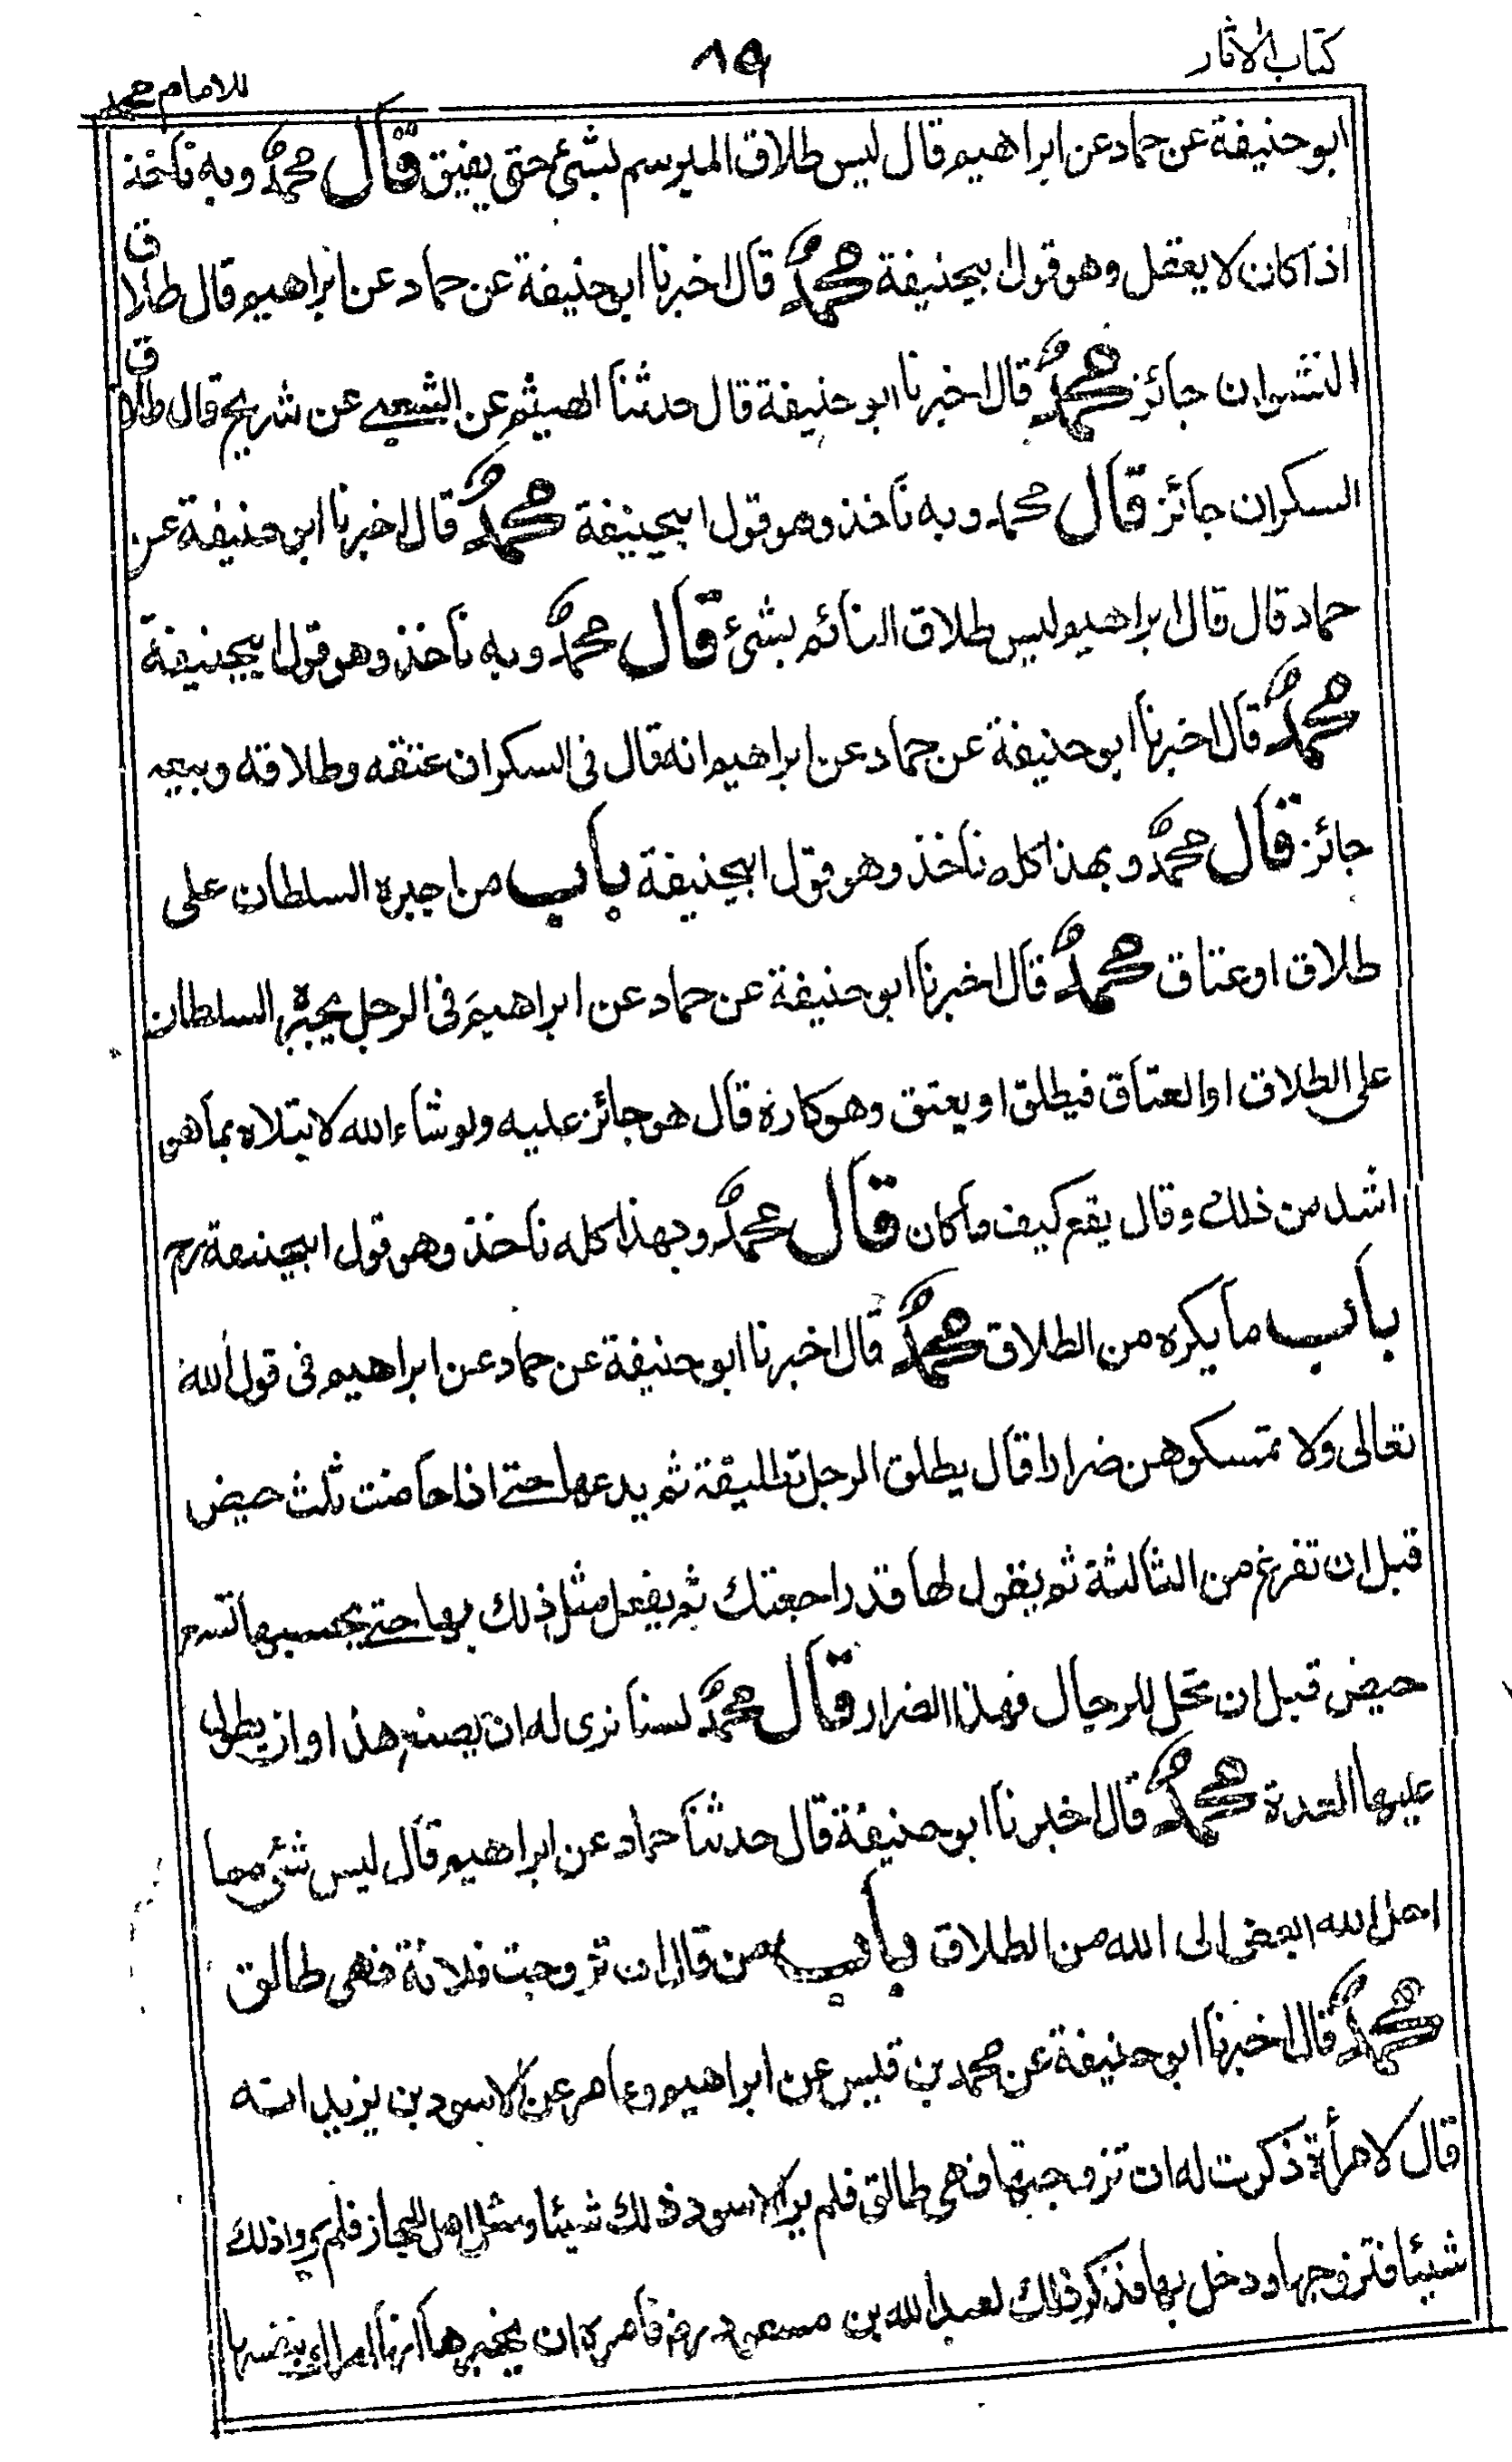 كتاب الاثار
٨٩
للامام محمد
ابو حنيفة عن حماد عن ابراهيم قال ليس طلاق المبرسم بشئ حتى يفيق قال محمد وبه ناخذ
اذا كان لا يعقل وهو قول ابيحنيفة محمد قال اخبرنا ابو حنيفة عن حماد عن ابراهيم قال طلاق
النشوان جائز محمد قال اخبرنا ابو حنيفة قال حدثنا الهيثم عن الشعبى عن شريح قال طلاق
السكران جائز قال محمد وبه ناخذ وهو قول ابيحنيفة محمد قال اخبرنا ابو حنيفة عن
حماد قال قال ابراهيم ليس طلاق النائم بشئ قال محمد وبه ناخذ وهو قول ابيحنيفة
محمد قال اخبرنا ابو حنيفة عن حماد عن ابراهيم انه قال فى السكران عتقه وطلاقه وبيعه
جائز قال محمد وبهذا كله ناخذ وهو قول ابيحنيفة باب من اجبره السلطان على
طلاق او عتاق محمد قال اخبرنا ابو حنيفة عن حماد عن ابراهيم فى الرجل يجبره السلطان
على الطلاق او العتاق فيطلق او يعتق وهو كاره قال هو جائز عليه ولو شاء الله لابتلاه بما هو
اشد من ذلك وقال يقع كيف ما كان قال محمد وبهذا كله ناخذ وهو قول ابيحنيفة رح
باب ما يكره من الطلاق محمد قال اخبرنا ابو حنيفة عن حماد عن ابراهيم فى قول الله
تعالى ولا تمسكوهن ضرارا قال يطلق الرجل تطليقة ثم يدعها حتى اذا حاضت ثلث حيض
قبل ان تفرغ من الثالثة ثم يقول لها قد راجعتك ثم يفعل مثل ذلك بها حتى يحبسها تسع
حيض قبل ان تحل للرجال فهذا الضرار قال محمد لسنا نرى له ان يصنع هذا وان يطول
عليها العدة محمد قال اخبرنا ابو حنيفة قال حدثنا حماد عن ابراهيم قال ليس شئ مما
احل الله ابغض الى الله من الطلاق باب من قال ان تزوجت فلانة فهى طالق
محمد قال اخبرنا ابو حنيفة عن محمد بن قيس عن ابراهيم وعامر عن الاسود بن يزيد انه
قال لامرأة ذكرت له ان تزوجتها فهى طالق فلم ير الاسود ذلك شيئا وسئل اهل الحجاز فلم يروا ذلك
شيئا فتزوجها ودخل بها فذكر ذلك لعبد الله بن مسعود رض فامره ان يخبرها انها املك بنفسها